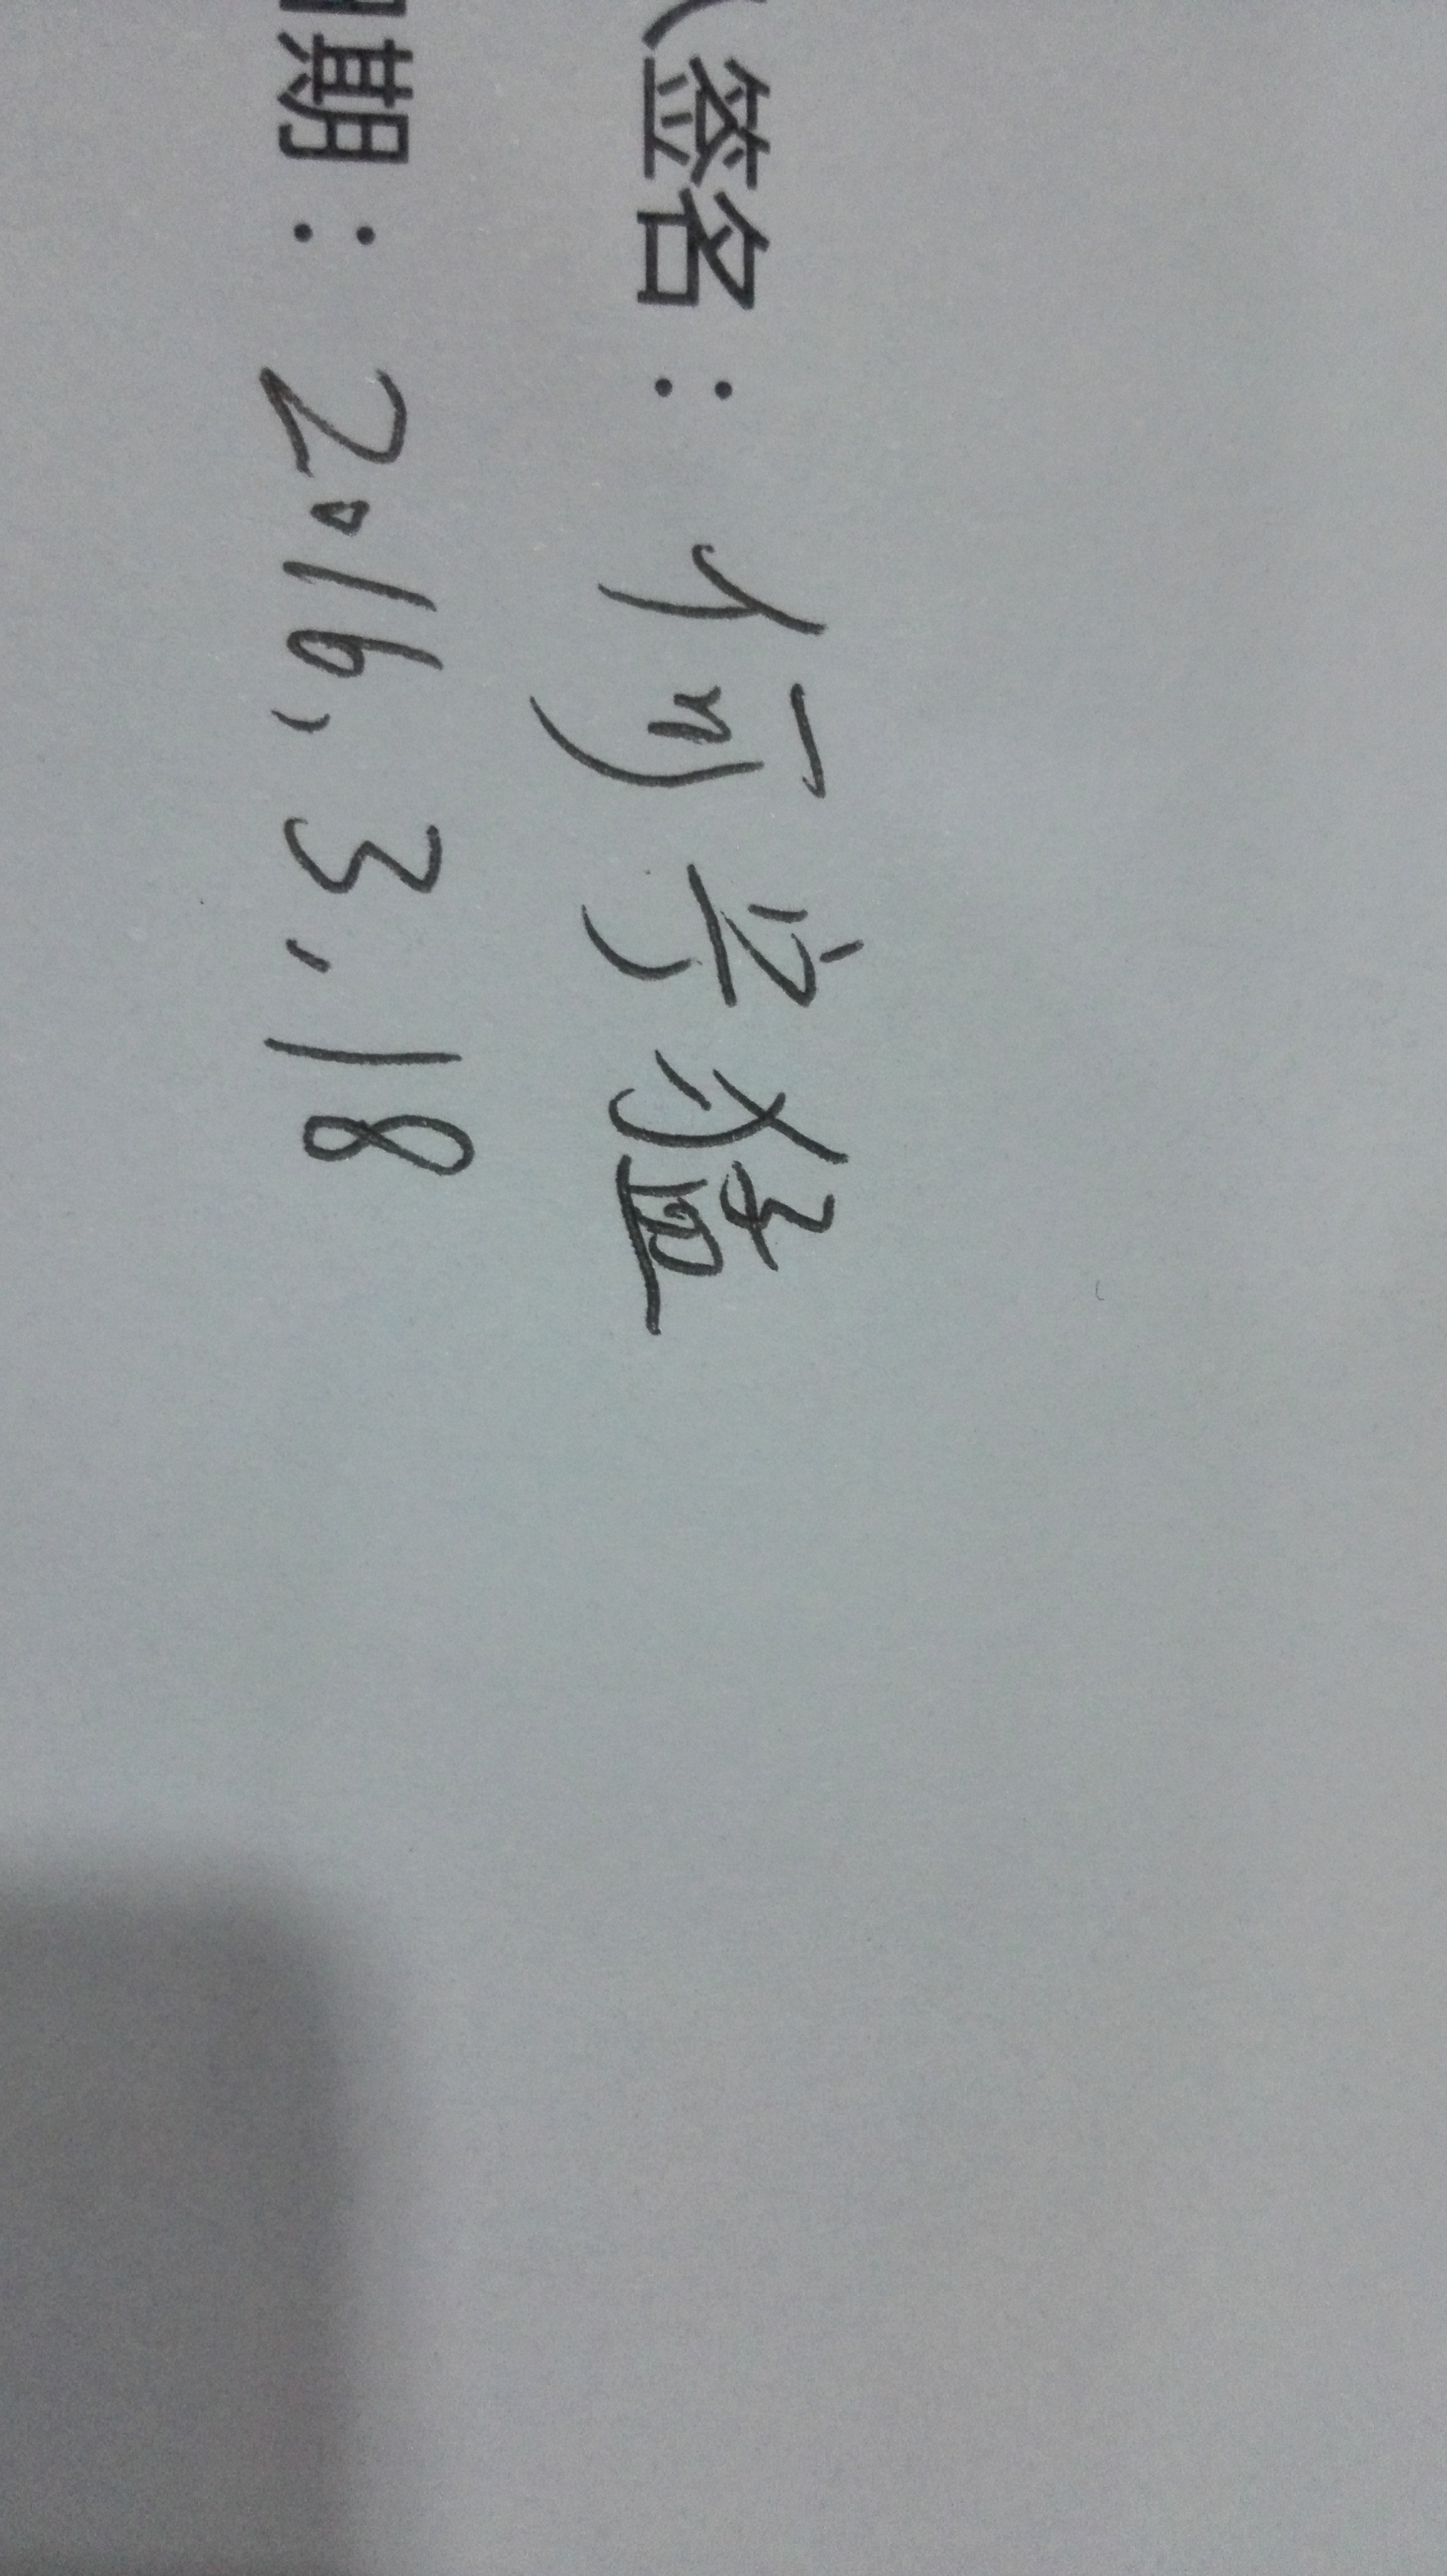 人签名：何字猛
日期：2016，3.18